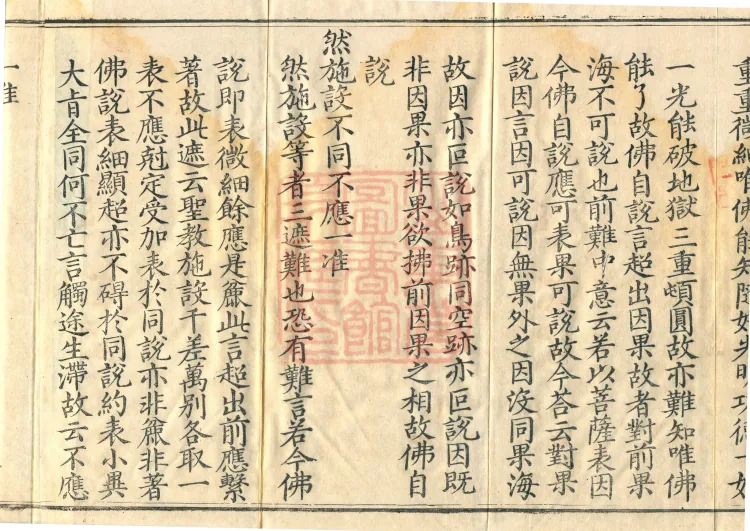 重重微細唯佛能知
一光能破地獄三重頓圓故亦難知唯佛
能了故佛自說言超出因果故者對前果
海不可說也前難中意云若以菩薩表因
今佛自說應可表果可說故今答云對果
說因言因可說因無果外之因沒同果海
故因亦叵說如鳥跡同空跡亦叵說因既
非因果亦非果欲拂前因果之相故佛自
說
然施設不同不應一准
然施設等者三遮難也恐有難言若令佛
說即表微細餘應是麁此言超出前應繫
著故此遮云聖教施設千差萬別各取一
表不應尅定受加表於同說亦非麁非著
佛說表細顯超亦不碍於同說約表小異
大肯全同何不亡言觸途生滯故云不應
一准